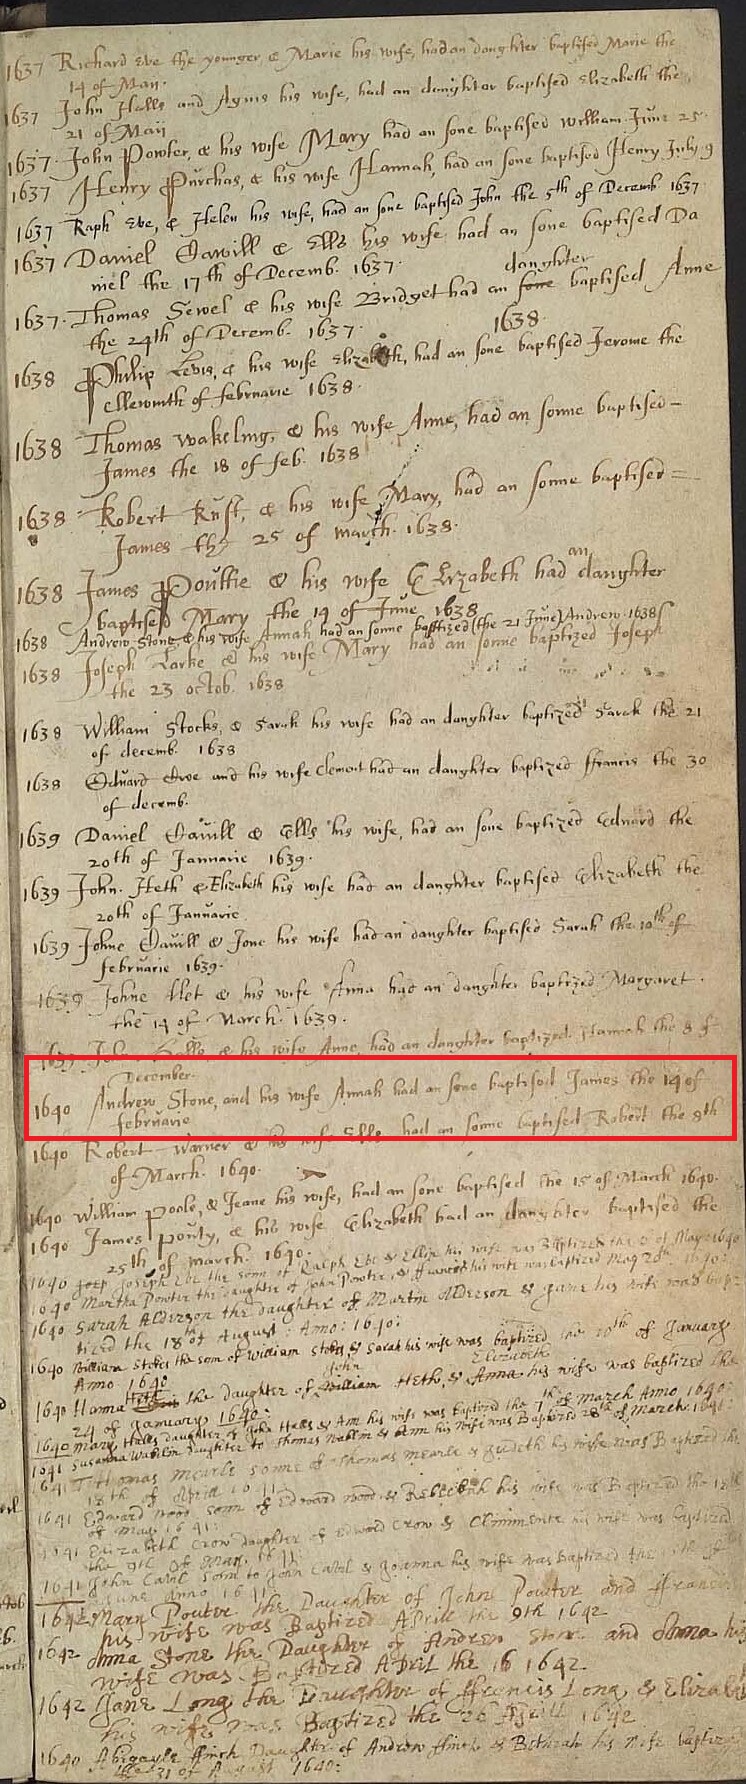 1637 Richard Eve the younger, & Marie his wife, had an daughter baptised Marie the
14 of Maii.
1637 John Halls and Agnis his wife, had an daughter baptised Elizabeth the
21 of Maii
1637. John Powter, & his wife Mary had an sone baptised william. June 25.
1637 Henry Purchas, & his wife Hannah, had an sone baptised Henry July 9
1637 Raph Eve, & Helen his wife, had an sone baptised John the 5th of Decemb. 1637.
1637 Daniel Cavill & Ells his wife had an sone baptised Da
niel the 17th of Decemb. 1637.
daughter
1637. Thomas Sewel & his wife Bridget had an sone baptised Anne
the 24th of Decemb. 1637.
1638.
1638 Philip Levis, & his wife Elizabeth, had an sone baptised Jerome the
elleventh of februarie 1638.
1638 Thomas wakeling, & his wife Anne, had an sonne baptised
James the 18 of feb. 1638
1638 Robert Kust, & his wife Mary, had an sonne baptised
James the 25 of march. 1638.
an
1638 James Poultie & his wife Elizabeth had daughter
baptised Mary the 14 of June 1638
1638 Andrew Stone & his wife Annah had an sonne baptized (the 21 June) Andrew 1638
1638 Joseph Larke & his wife Mary had an sonne baptized Joseph
the 23 octob. 1638
1638 William Stocks, & Sarah his wife had an daughter baptized Sarah the 21
of decemb. 1638
1638 Eduard Crve and his wife Clement had an daughter baptized ffrancis the 30
of decemb.
1639 Daniel Cauill & Ells his wife, had an sone baptized Eduard the
20th of Januarie 1639.
1639 John. Heth & Elizabeth his wife had an daughter baptised Elizabeth the
20th of Januarie
1639 Johne Cauill & Jone his wife had an daughter baptised Sarah the 10th of
februarie 1639.
1639 Johne & his wife Anna had an daughter baptized Margaret.
the 14 of March. 1639.
1639 John Halls & his wife Anne, had an daughter baptized Hannah the 8 of
December.
1640 Andrew Stone, and his wife Annah had an sone baptised James the 14 of
februarie
1640 Robert Warner & his wife Ells had an sonne baptised Robert the 8th
of March. 1640.
1640 William Poole, & Jeane his wife, had an sone baptised the 15 of March 1640.
1640 James Pouty, & his wife Elizabeth had an daughter baptised the
25th of march. 1640.
1640 Joseph Eve the sonn of Ralph Eve & Ellin his wife was Baptized the of May 1640
1640 Martha Powter the daughter of John Powter, & ffrances his wife was baptized May 20th 1640:
1640 Sarah Alderson the daughter of Martin Alderson & Jane his wife was bap
tized the 18th of August: Anno: 1640:
1640 William Stokes the sonn of William Stokes & Sarah his wife was baptized the 10th of January
Anno 1640
John Elizabeth
1640 Hanna Heth the daughter of William Heth, & Anna his wife was baptized the
24 of January 1640:
1640 Mary Halls daughter of John Halls & Ann his wife was baptized the 7th of March Anno 1640:
1641 Susanna Wablin daughter to Thomas Wablin & Ann his wife was Baptized 28th of March: 1641:
1641 Thomas Mearle sonne of Thomas Mearle & Judeth his wife was Baptized the
18th of Aprill 1641:
1641 Edward Wood sonn of Edward Wood & Rebeckah his wife was Baptized the
of May 1641:
1641 Elizabeth Crow daughter of Edward Crow & Clemmente his wife was baptized
the 9th of May. 1641:
1641 John Carol sonn to John Carol & Joanna his wife was baptized the of
June Anno 1641
1642 Mary Pouter the Daughter of John Pouter and ffrances
his wife was Baptized Aprill the 9th 1642
1642 Anna Stone the Daughter of Andrew Stone and Anna his
wife was Baptized April the 16 1642
1642 Jane Long the Daughter of ffrancis Long & Elizab
his wife was Baptized the 20 Aprill 1642
1640 Abigayle ffinch Daughter of Andrew ffinch & Bethiah his wife baptized
the 31 of August 1640: